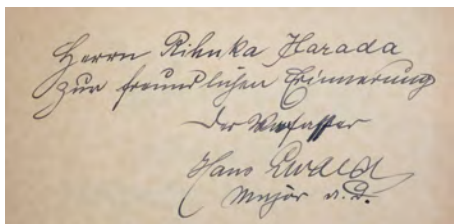 Herrn Rikuka Harada
zur freundlichen Erinnerung
Der Verfasser
Hans Ewald
Major a.D.